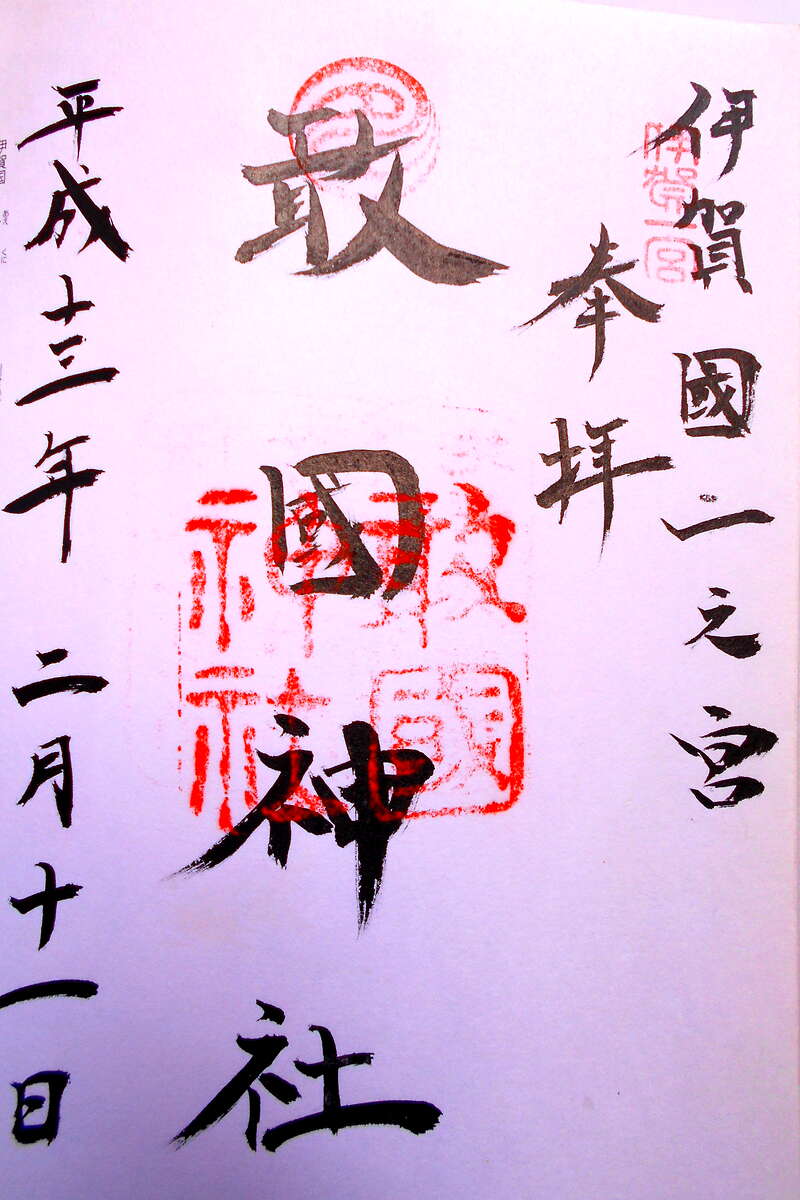 伊賀國一之宮
奉拝
敢國神社
平成十三年二月十一日
伊賀一宮
敢國
神社